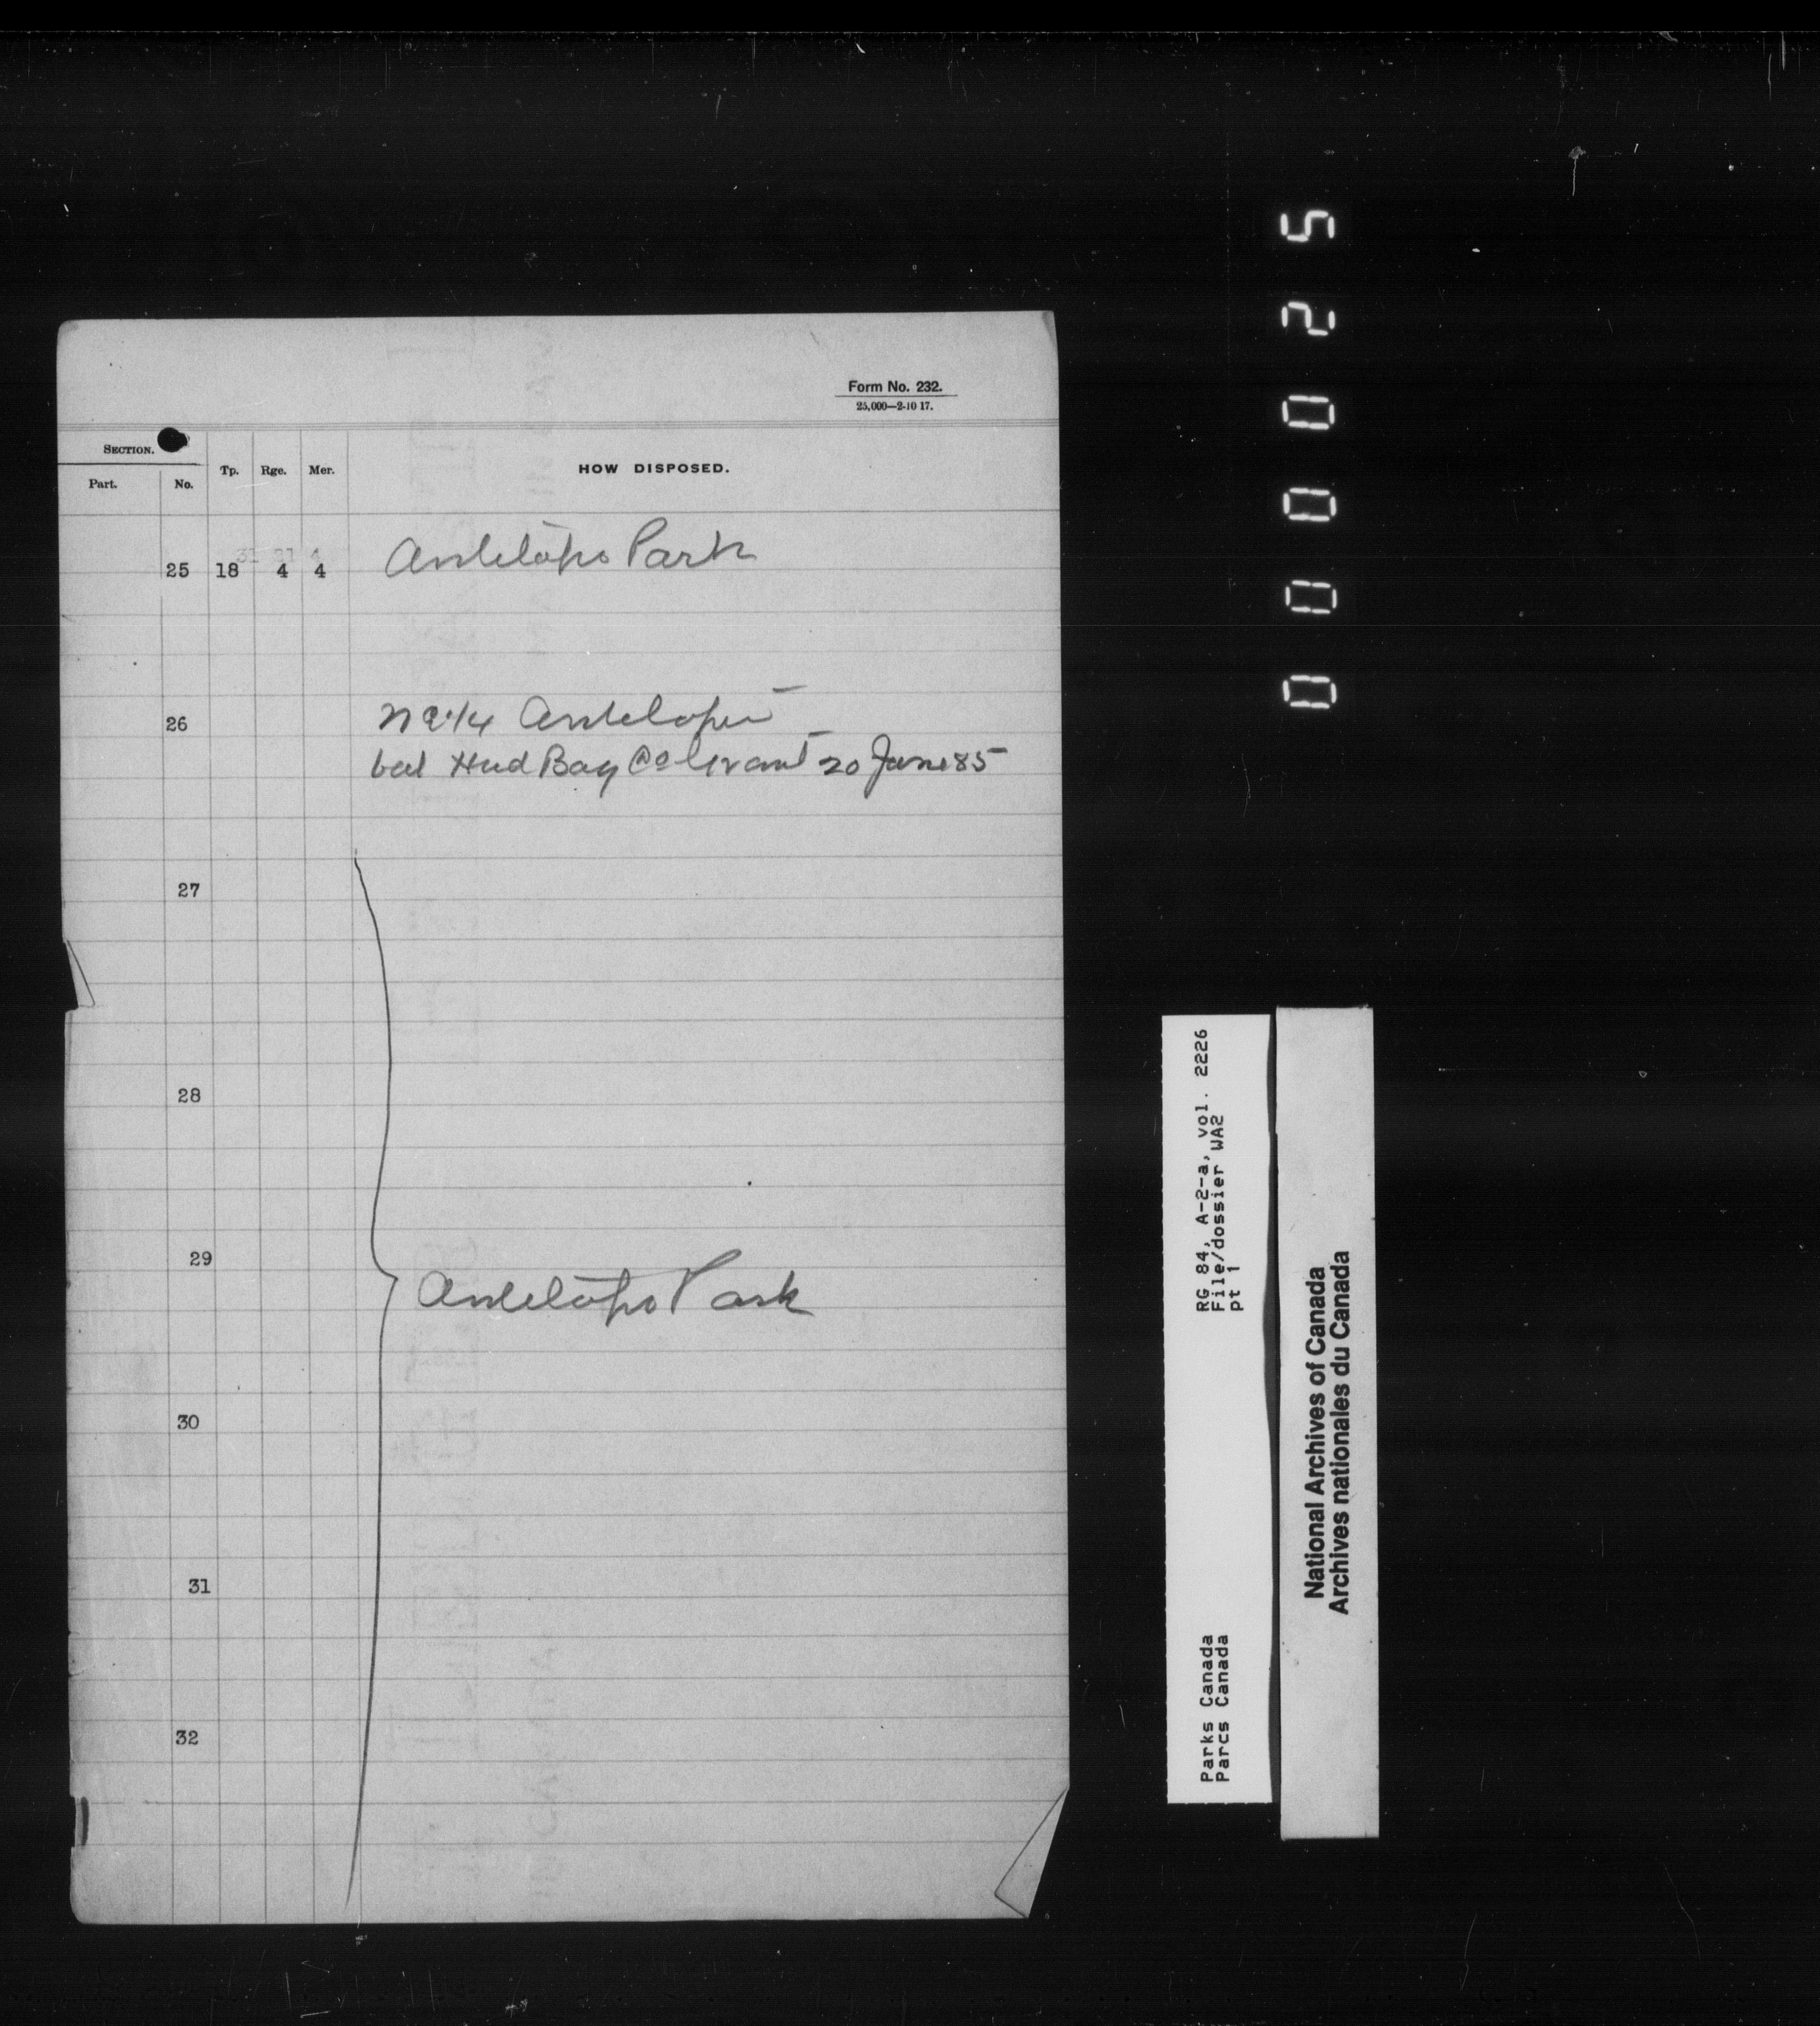 Form No. 232.
25,000—2-10 17.
SECTION.
Part. No. Tp. Rge. Mer. HOW DISPOSED.
25 18 4 4 Antelope Park
26 NE 1/4 Antelope
bal Hud Bay Co Grant 20 June 85
27
28
29 Antelope Park
30
31
32
000025
RG 84, A-2-a, vol. 2226
File/dossier WA2
pt 1
Parks Canada
Parcs Canada
National Archives of Canada
Archives nationales du Canada